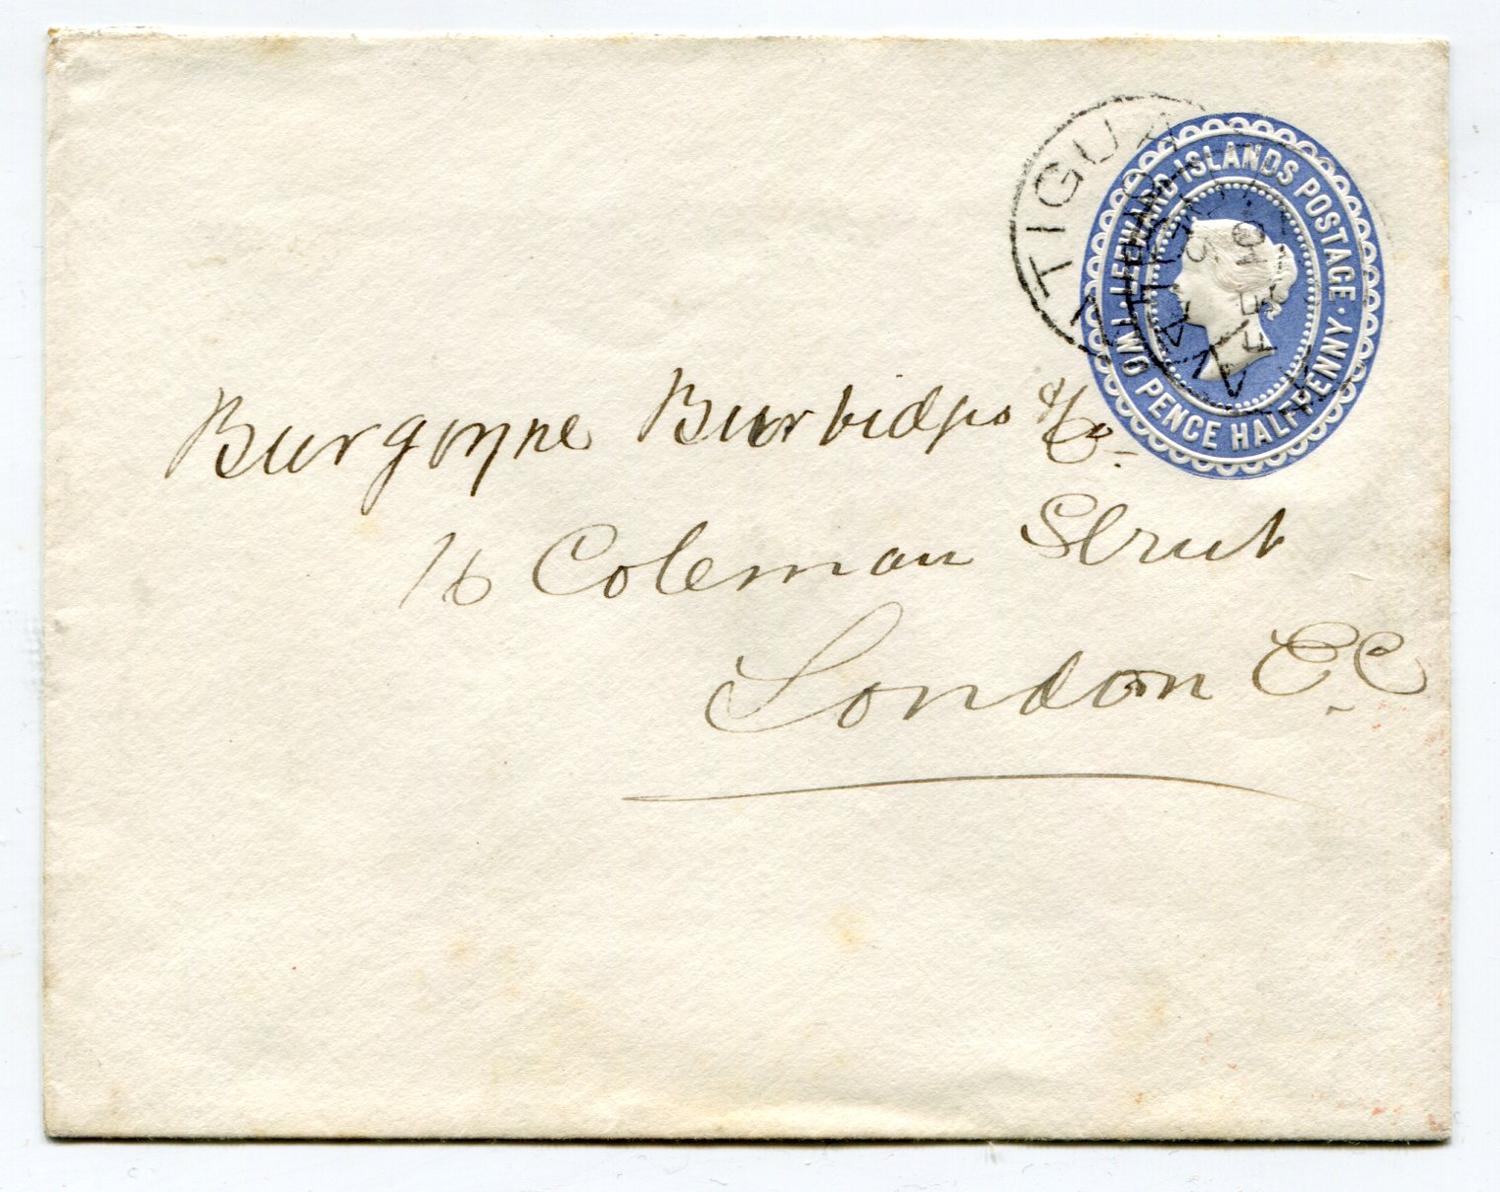 ANTIGUA
FE 10
LEEWARD ISLANDS POSTAGE · TWO PENCE HALFPENNY ·
Burgoyne Burbidges & Co
16 Coleman Street
London E.C